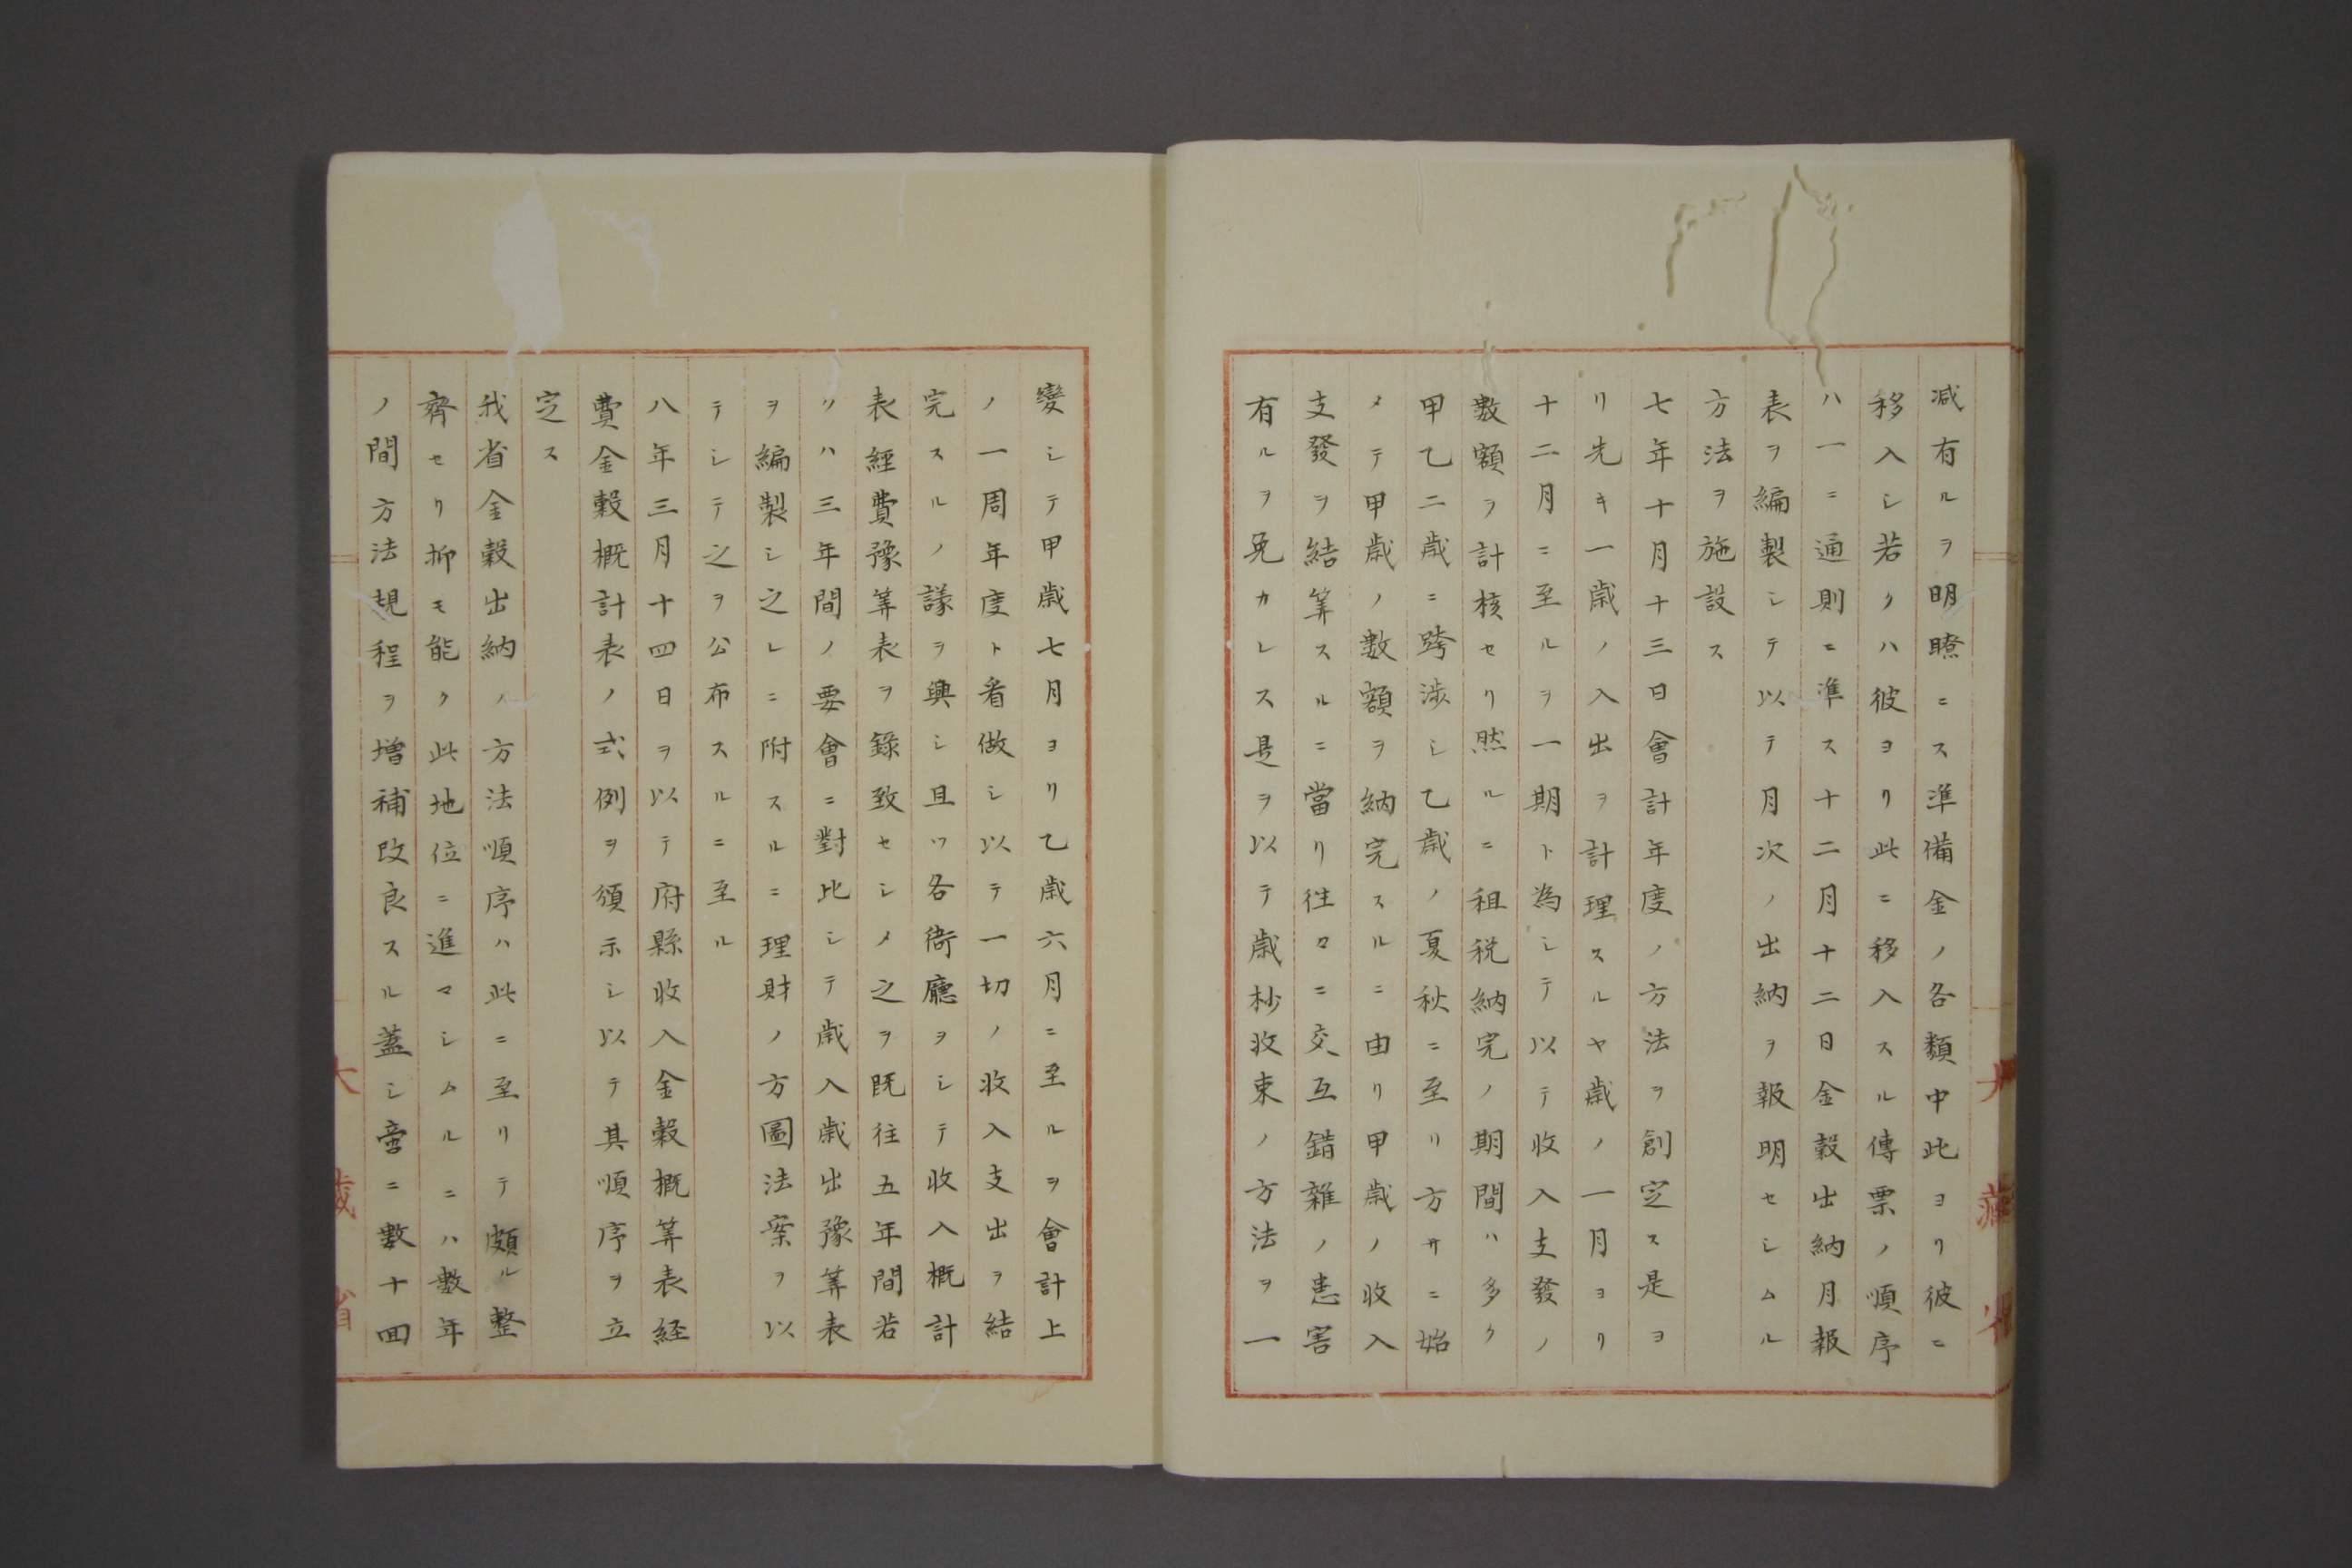 減有ルヲ明瞭ニス準備金ノ各類中此ヨリ彼ニ
移入シ若クハ彼ヨリ此ニ移入スル傳票ノ順序
ハ一ニ通則ニ準ス十二月十二日金穀出納月報
表ヲ編製シテ以テ月次ノ出納ヲ報明セシムル
方法ヲ施設ス
七年十月十三日會計年度ノ方法ヲ創定ス是ヨ
リ先キ一歳ノ入出ヲ計理スルヤ歳ノ一月ヨリ
十二月ニ至ルヲ一期ト為シテ以テ收入支發ノ
數額ヲ計核セリ然ルニ租税納完ノ期間ハ多ク
甲乙二歳ニ跨渉シ乙歳ノ夏秋ニ至リ方サニ始
メテ甲歳ノ數額ヲ納完スルニ由リ甲歳ノ收入
支發ヲ結筭スルニ當リ往々ニ交互錯雜ノ患害
有ルヲ免カレス是ヲ以テ歳杪收束ノ方法ヲ一
變シテ甲歳七月ヨリ乙歳六月ニ至ルヲ會計上
ノ一周年度ト看做シ以テ一切ノ收入支出ヲ結
完スルノ議ヲ興シ且ツ各衙廳ヲシテ收入概計
表經費豫筭表ヲ錄致セシメ之ヲ既往五年間若
クハ三年間ノ要會ニ對比シテ歳入歳出豫筭表
ヲ編製シ之レニ附スルニ理財ノ方圖法案ヲ以
テシテ之ヲ公布スルニ至ル
八年三月十四日ヲ以テ府縣收入金穀概筭表経
費金穀概計表ノ式例ヲ頒示シ以テ其順序ヲ立
定ス
我省金穀出納ノ方法順序ハ此ニ至リテ頗ル整
齊セリ抑モ能ク此地位ニ進マシムルニハ數年
ノ間方法規程ヲ増補改良スル蓋シ啻ニ數十回
大藏省